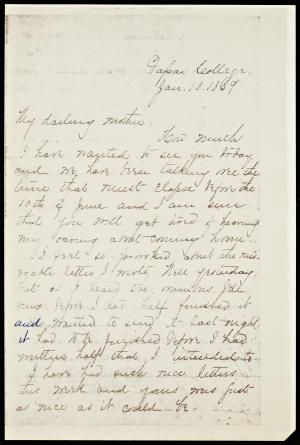 Vassar College,
Jan. 10. 1869
My darling mother.
How much
I have wanted to see you today
and we have been talking over the
time that must elapse before the
10th of June and I am sure
that you will get tired of hearing
my raving about coming home.
I feel so provoked about the mis-
erable letter I wrote Nell yesterday,
but as I heard the minutes bell
ring before I had half finished it
and wanted to send it last night
it had to be finished before I had
written half that I intended to.
I have had such nice letters
this week and yours was just
as nice as it could be.